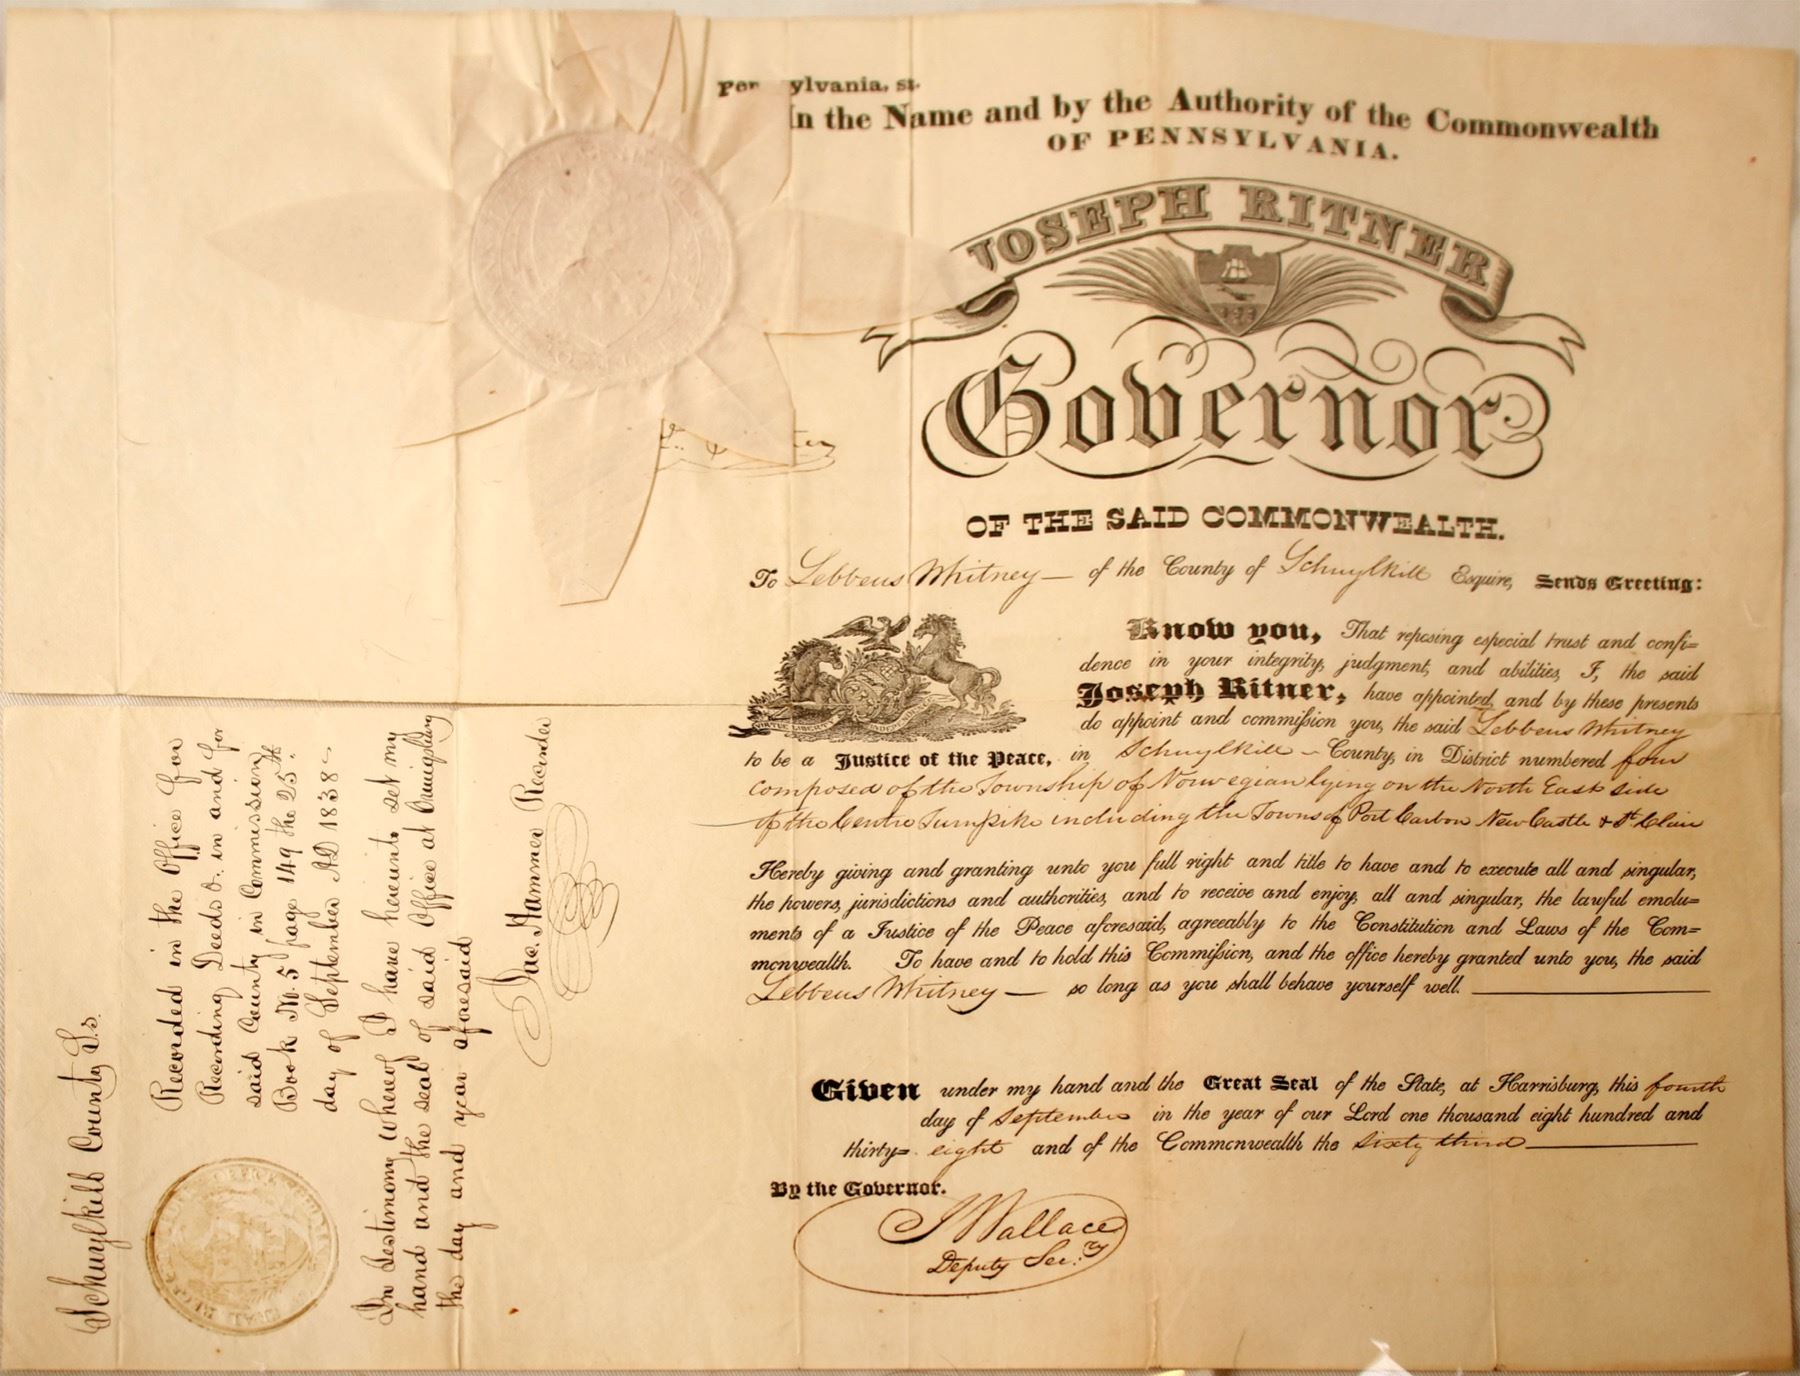 Pennsylvania, ss.
In the Name and by the Authority of the Commonwealth
OF PENNSYLVANIA.
JOSEPH RITNER
Governor
OF THE SAID COMMONWEALTH.
To Lebbeus Whitney — of the County of Schuylkill Esquire, Sends Greeting:
Know you, That reposing especial trust and confi=
dence in your integrity, judgment, and abilities, I, the said
Joseph Ritner, have appointed, and by these presents
do appoint and commission you, the said Lebbeus Whitney
to be a Justice of the Peace, in Schuylkill — County, in District numbered four
composed of the Township of Norwegian lying on the North East side
of the Centre Turnpike including the Towns of Port Carbon New Castle & St. Clair
Hereby giving and granting unto you full right and title to have and to execute all and singular,
the powers, jurisdictions and authorities, and to receive and enjoy, all and singular, the lawful emolu=
ments of a Justice of the Peace aforesaid, agreeably to the Constitution and Laws of the Com=
monwealth. To have and to hold this Commission, and the office hereby granted unto you, the said
Lebbeus Whitney — so long as you shall behave yourself well.
Given under my hand and the Great Seal of the State, at Harrisburg, this fourth
day of September in the year of our Lord one thousand eight hundred and
thirty= eight and of the Commonwealth the sixty third
By the Governor.
J Wallace
Deputy Sec.ry
Schuylkill County Ss.
Recorded in the Office for
Recording Deeds &. in and for
said County in Commission
Book No. 5 page 149 the 25th
day of September AD 1838 -
In testimony whereof I have hereunto set my
hand and the seal of said Office at Orwigsburg
the day and year aforesaid
Jac. Hammer Recorder